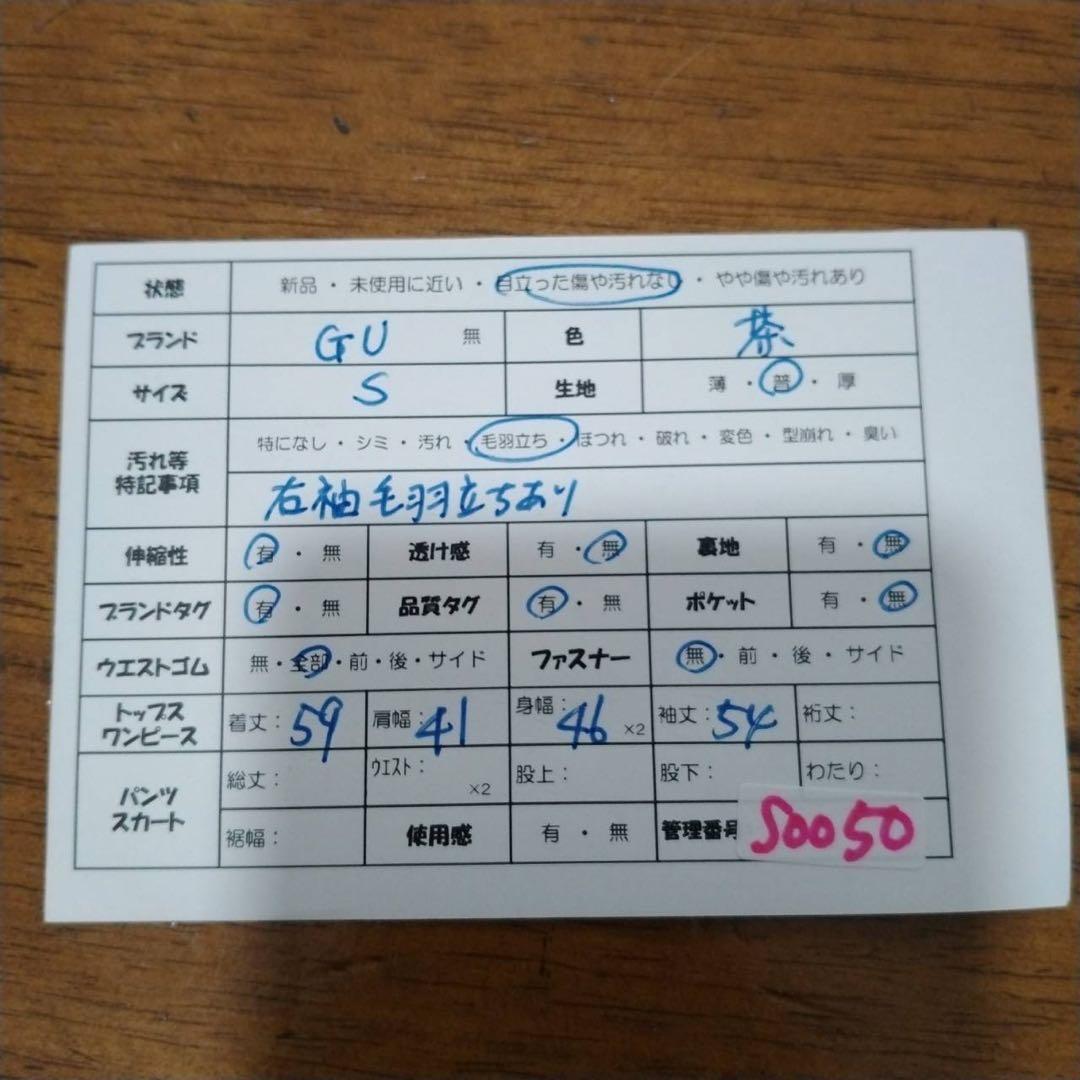 状態 新品・未使用に近い・目立った傷や汚れなし・やや傷や汚れあり
ブランド GU 無 色 茶
サイズ S 生地 薄・普・厚
汚れ等
特記事項
特になし・シミ・汚れ・毛羽立ち・ほつれ・破れ・変色・型崩れ・臭い
右袖毛羽立ちあり
伸縮性 有・無 透け感 有・無 裏地 有・無
ブランドタグ 有・無 品質タグ 有・無 ポケット 有・無
ウエストゴム 無・全部・前・後・サイド ファスナー 無・前・後・サイド
トップス
ワンピース
着丈：59 肩幅：41 身幅：46 ×2 袖丈：54 裄丈：
パンツ
スカート
総丈： ウエスト： ×2 股上： 股下： わたり：
裾幅： 使用感 有・無 管理番号 S0050